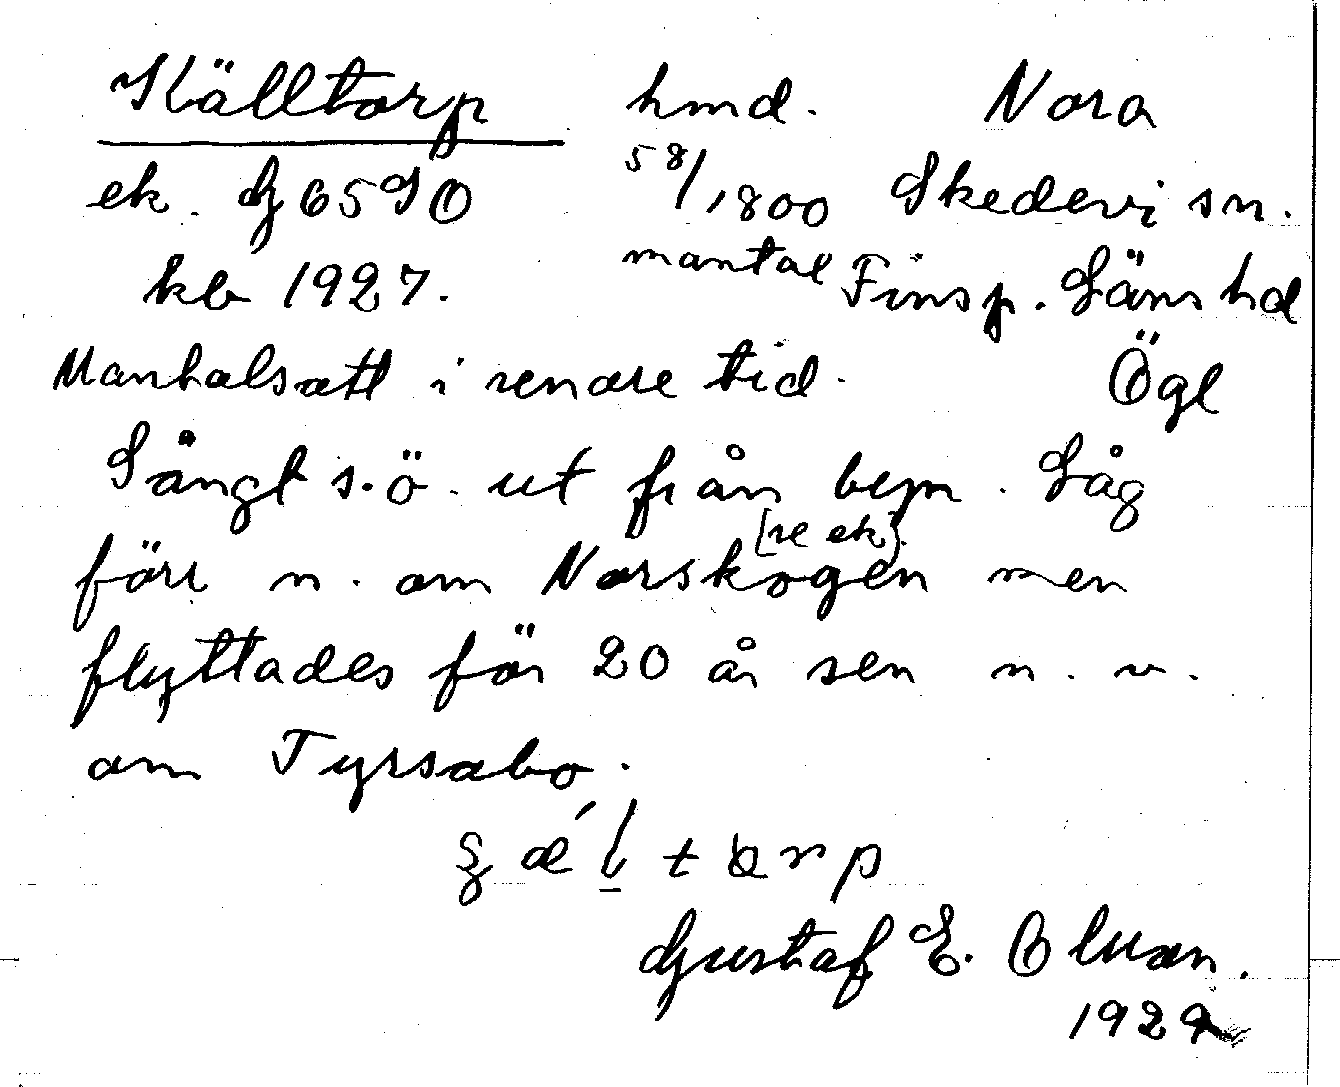 Källtorp hmd. Nora
ek. G 6590 58/1800 Skedevi sn.
kb 1927. mantal Finsp. Läns hd
Mantalsatt i senare tid. Ögl
Långt s.ö. ut från byn. Låg
[se ek].
förr n. om Norskogen men
flyttades för 20 år sen n. v.
om Tyrsabo.
Gustaf E. Olsson.
192